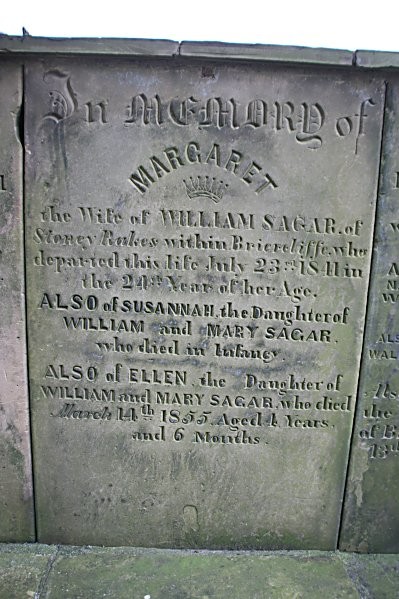 In MEMORY of
MARGARET
the Wife of WILLIAM SAGAR, of
Stoney Rakes within Briercliffe, who
departed this life July 23rd 1841 in
the 24th Year of her Age.
ALSO of SUSANNAH, the Daughter of
WILLIAM and MARY SAGAR,
who died in Infancy.
ALSO of ELLEN, the Daughter of
WILLIAM and MARY SAGAR, who died
March 14th 1855, Aged 4 Years,
and 6 Months.